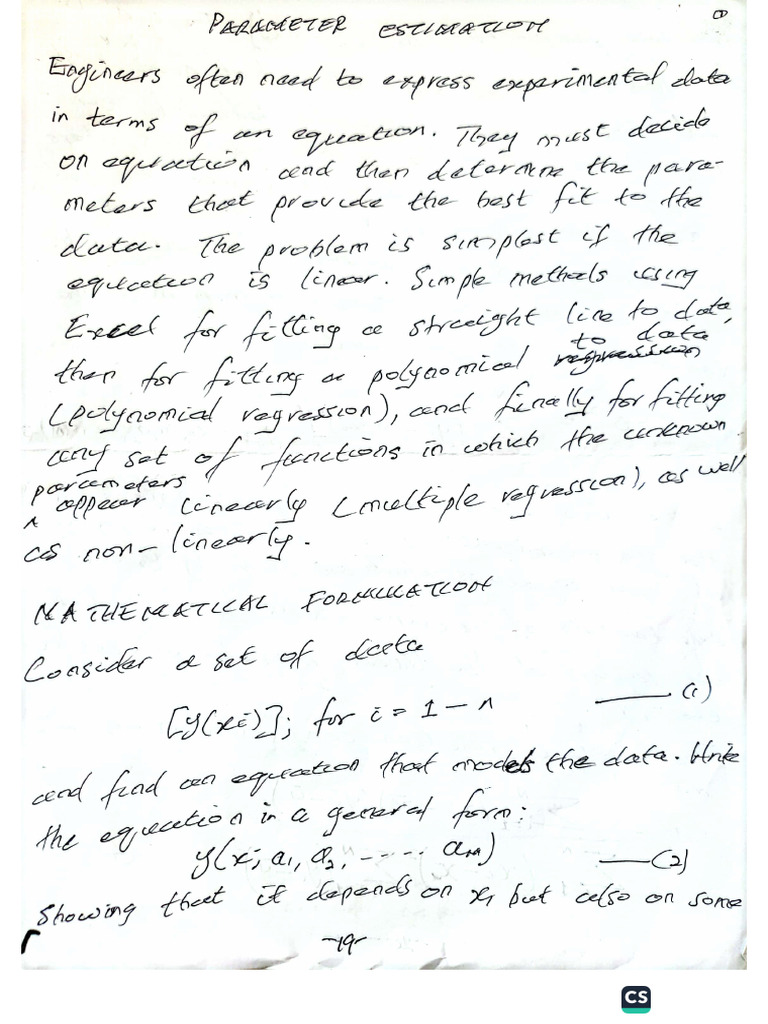 ①
PARAMETER ESTIMATION
Engineers often need to express experimental data
in terms of an equation. They must decide
on equation and then determine the para-
meters that provide the best fit to the
data. The problem is simplest if the
equation is linear. Simple methods using
Excel for fitting a straight line to data,
then for fitting a polynomial to data
(polynomial regression), and finally for fitting
any set of functions in which the unknown
parameters
appear linearly (multiple regression), as well
as non-linearly.
MATHEMATICAL FORMULATION
Consider a set of data
[y(xi)]; for i = 1 - n —— (1)
and find an equation that models the data. Write
the equation in a general form:
y(x; a1, a2, ----- am) —— (2)
Showing that it depends on x, but also on some
-19-
CS